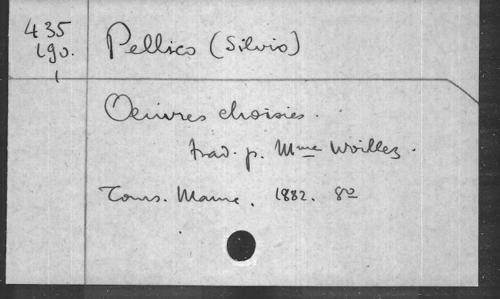 435
190.
1
Pellico (Silvio)
Oeuvres choisies.
trad. p. Mme Woillez.
Tours. Mame. 1882. 8o